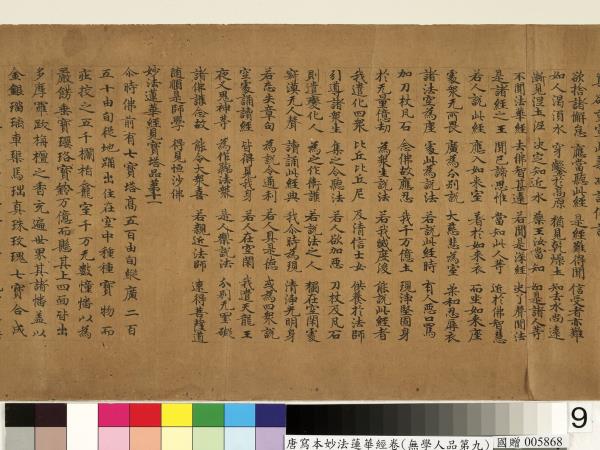 欲捨諸懈怠 應當聽此經 是經難得聞 信受者亦難
如人渴須水 穿鑿於高原 猶見乾燥土 知去水尚遠
漸見濕土泥 決定知近水 藥王汝當知 如是諸人等
不聞法華經 去佛智甚遠 若聞是深經 決了聲聞法
是諸經之王 聞已諦思惟 當知此人等 近於佛智慧
若人說此經 應入如來室 著於如來衣 而坐如來座
處衆无所畏 廣為分別說 大慈悲為室 柔和忍辱衣
諸法空為座 處此為說法 若說此經時 有人惡口罵
加刀杖瓦石 念佛故應忍 我千万億土 現淨堅固身
於无量億劫 為衆生說法 若我滅度後 能說此經者
我遣化四衆 比丘比丘尼 及清信士女 供養於法師
引導諸衆生 集之令聽法 若人欲加惡 刀杖及瓦石
則遣變化人 為之作衛護 若說法之人 獨在空閑處
寂漠无人聲 讀誦此經典 我尒時為現 清淨光明身
若忘失章句 為說令通利 若人具是德 或為四衆說
空處讀誦經 皆得見我身 若人在空閑 我遣天龍王
夜叉鬼神等 為作聽法衆 是人樂說法 分別无罣礙
諸佛護念故 能令大衆喜 若親近法師 速得菩薩道
隨順是師學 得見恒沙佛
妙法蓮華經見寶塔品第十一
尒時佛前有七寶塔高五百由旬縱廣二百
五十由旬從地踊出住在空中種種寶物而
莊挍之五千欄楯龕室千万无數幢幡以為
嚴飾垂寶瓔珞寶鈴万億而懸其上四面皆出
多摩羅跋栴檀之香充遍世界其諸幡蓋以
金銀瑠璃車𤦲馬瑙真珠玫瑰七寶合成
9
唐寫本妙法蓮華經卷(無學人品第九)
國贈 005868